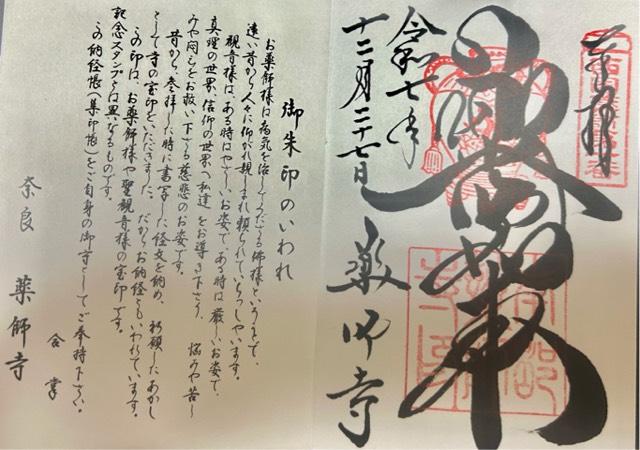 奉拝
薬師如来
令和七年
十二月二十七日
薬師寺
御朱印のいわれ
お薬師様は病気を治して下さる佛様ということで、
遠い昔から人々に仰がれ親しまれ頼られていらっしゃいます。
観音様は、ある時はやさしいお姿で、ある時は厳しいお姿で、
真理の世界、信仰の世界へ私達をお導き下さり 悩みや苦し
みや をお救い下さる慈悲のお姿です。
昔から参拝した時に書写した経文を納め、祈願したあかし
として寺の宝印をいただきました。だからお納経ともいわれています。
この印は、お薬師様や聖観音様の宝印です。
記念スタンプとは異なるものです。
この納経帳(集印帖)をご自身の御守としてご奉持下さい。
合掌
奈良 薬師寺